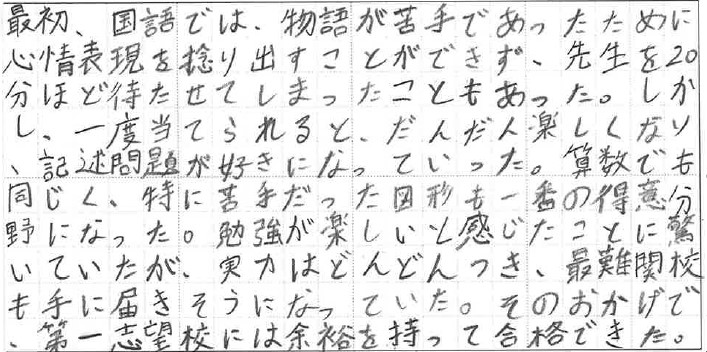 最初、国語では、物語が苦手であったために
心情表現を捻り出すことができず、先生を20
分ほど待たせてしまったこともあった。しか
し、一度当てられると、だんだん楽しくなり
、記述問題が好きになっていった。算数でも
同じく、特に苦手だった図形も一番の得意分
野になった。勉強が楽しいと感じたことに驚
いていたが、実力はどんどんつき、最難関校
も手に届きそうになっていた。そのおかげで
、第一志望校には余裕を持って合格できた。